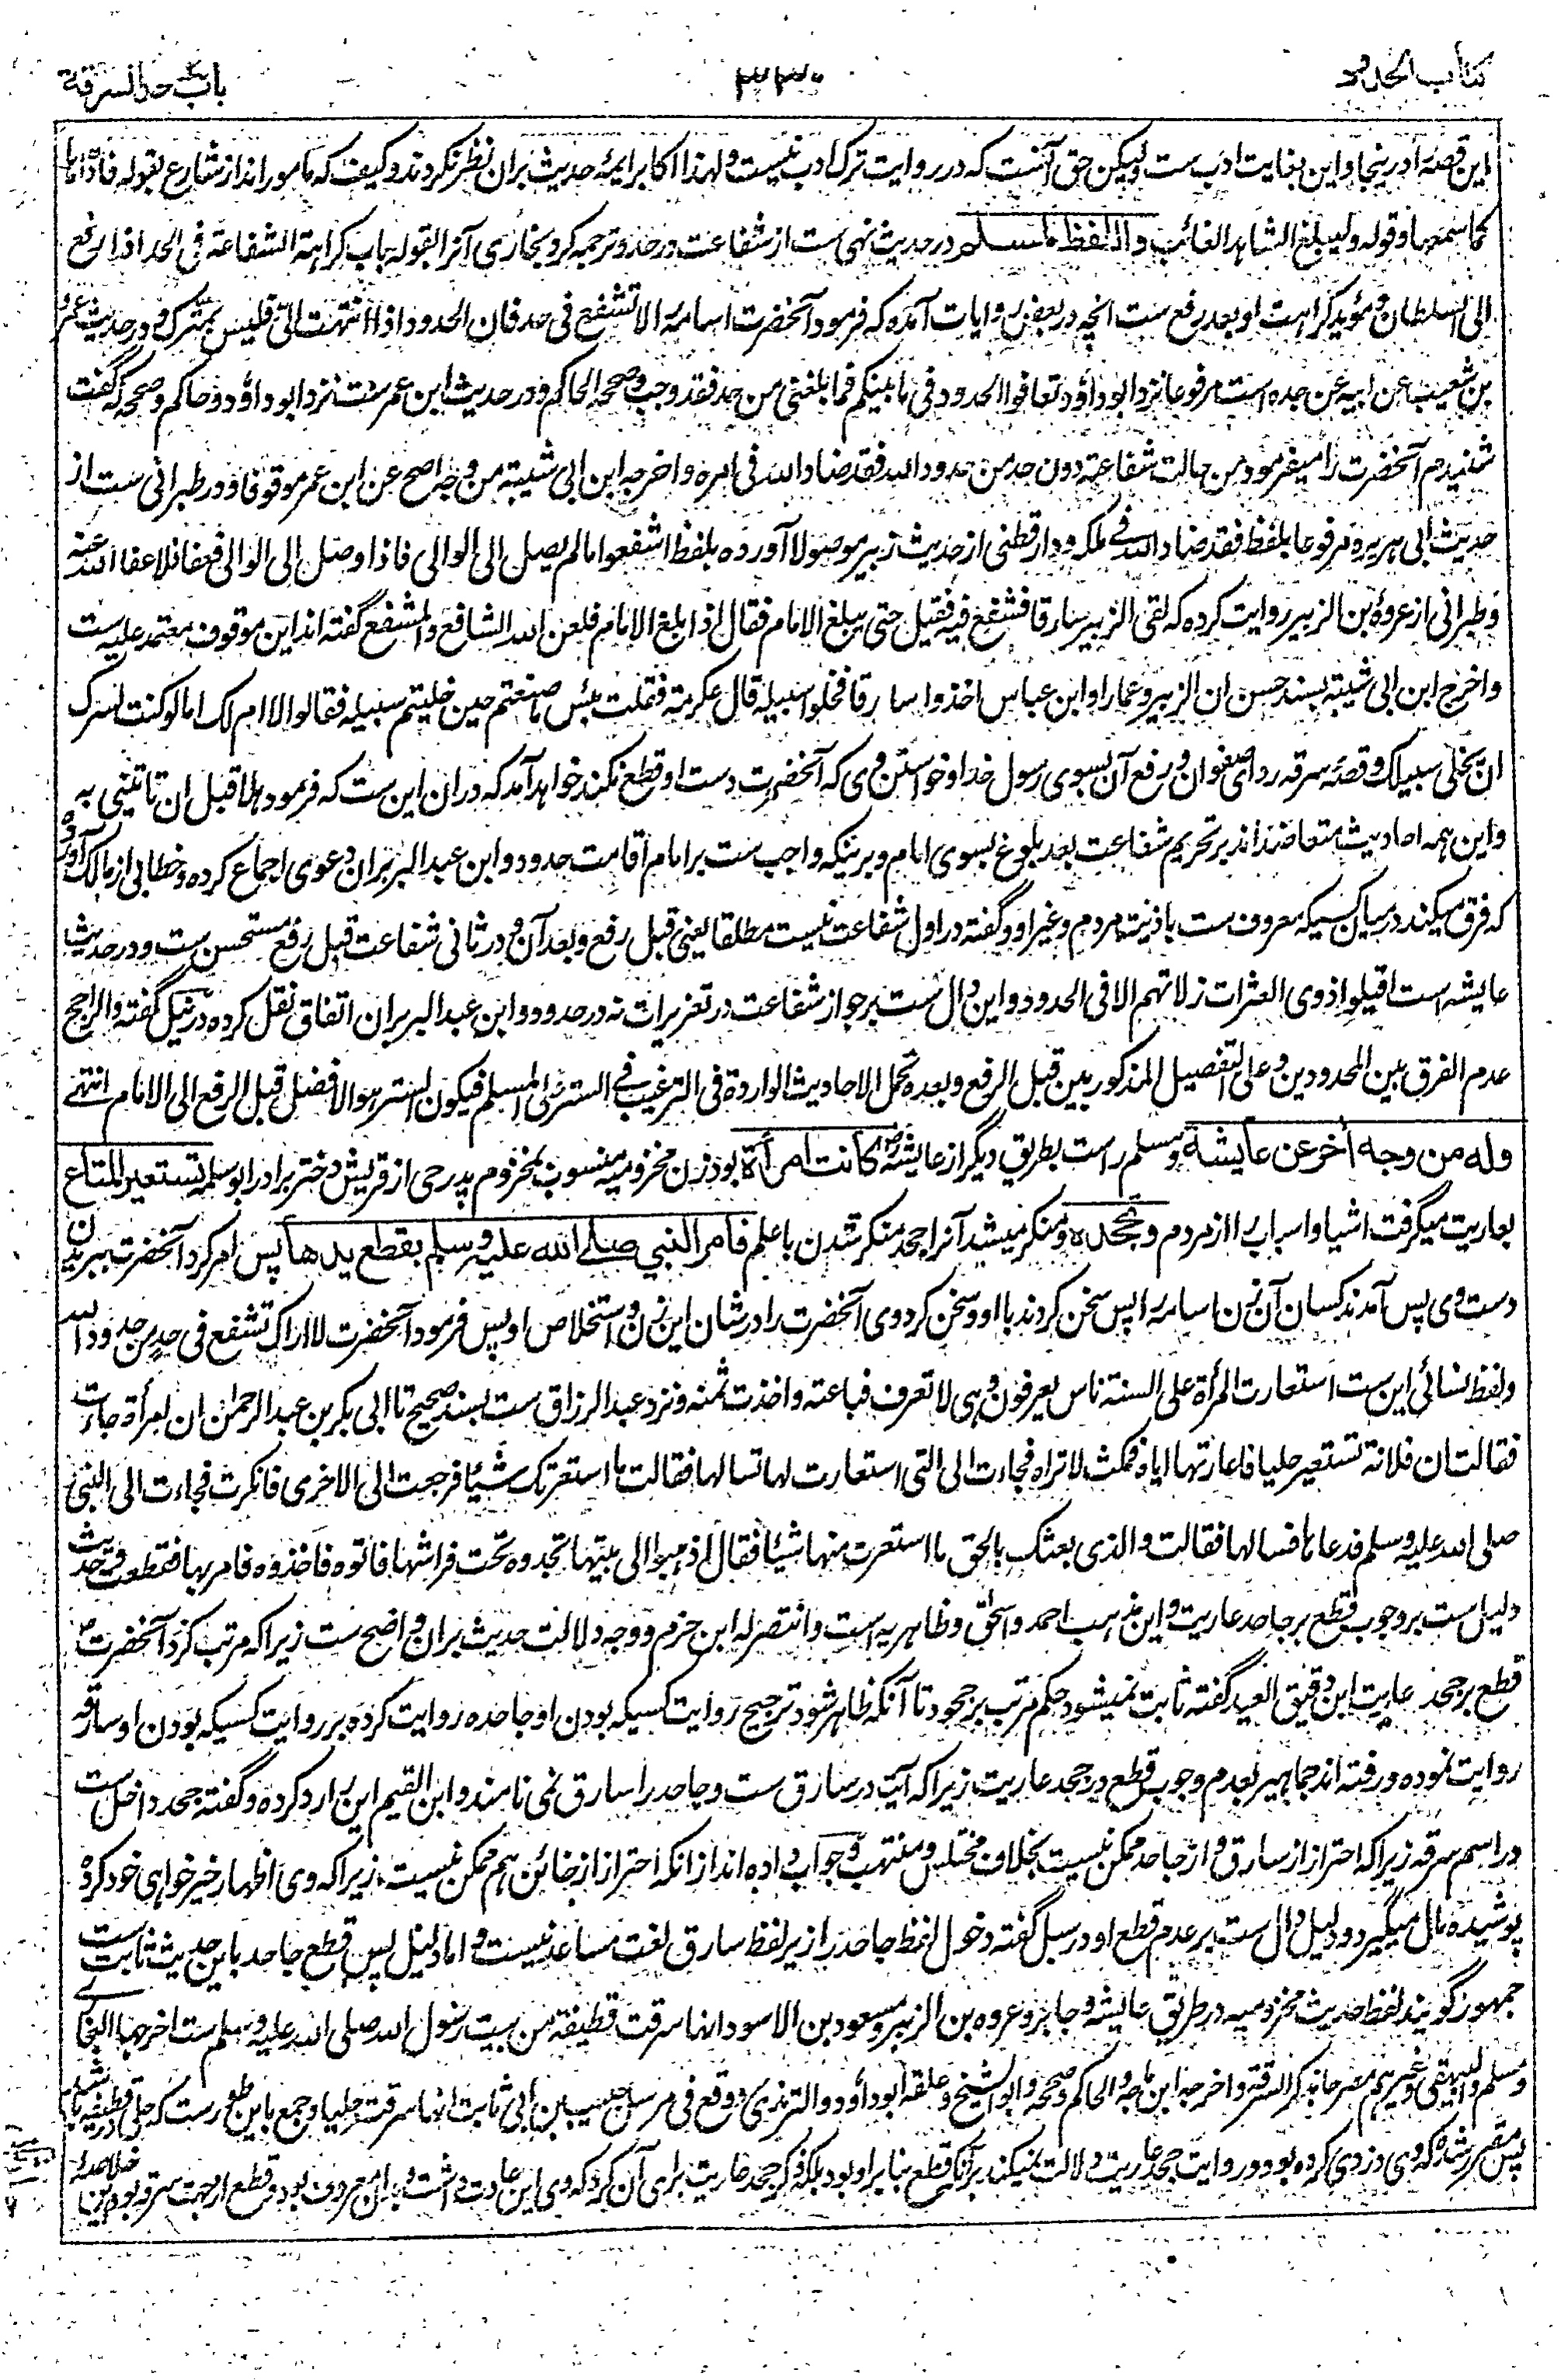 کتاب الحدود
۳۳۰
باب حد السرقة
این قصه را درینجا و این بغایت ادب ست ولیکن حق آنست که در روایت ترک ادب نیست و لهذا اکابر ایمۀ حدیث بران نظر نکردند و کیف که مامور اند از شارع بقوله فاداها
کما سمعها و قوله و لیبلغ الشاهد الغائب واللفظ لمسلم در حدیث نهی ست از شفاعت در حد و ترجمه کرد بخاری آنرا بقوله باب کراهة الشفاعة فی الحد اذا رفع
الی السلطان و موید کراهت او بعد رفع ست انچه در بعض روایات آمده که فرمود آنحضرت اسامه را لا تشفع فی حد فان الحدود اذا انتهت الیّ فلیس بمترک و در حدیث عمرو
بن شعیب عن ابیه عن جده است مرفوعا نزد ابو داؤد تعافوا الحدود فی ما بینکم فما بلغنی من حد فقد وجب و صححه الحاکم و در حدیث ابن عمر ست نزد ابو داؤد و حاکم و صححه که گفت
شنیدم آنحضرت را میفرمود من حالت شفاعته دون حد من حدود الله فقد ضاد الله فی امره و اخرجه ابن ابی شیبة من وجه اصح عن ابن عمر موقوفا و در طبرانی ست از
حدیث ابی هریره مرفوعا بلفظ فقد ضاد الله فی ملکه و دارقطنی از حدیث زبیر موصولا آورده بلفظ اشفعوا ما لم یصل الی الوالی فاذا وصل الی الوالی فعفا فلا عفا الله عنه
و طبرانی از عروة بن الزبیر روایت کرده که لقی الزبیر سارقا فشفع فیه فقیل حتی یبلغ الامام فقال اذا بلغ الامام فلعن الله الشافع والمشفع گفته اند این موقوف معتمد علیه ست
و اخرج ابن ابی شیبة بسند حسن ان الزبیر و عمارا و ابن عباس اخذوا سارقا فخلوا سبیله قال عکرمة فقلت بئس ما صنعتم حین خلیتم سبیله فقالوا لا ام لک اما لو کنت لسرک
ان یخلی سبیلک و قصۀ سرقه ردای صفوان و رفع آن بسوی رسول خدا و خواستن وی که آنحضرت دست او قطع نکند خواهد آمد که دران این ست که فرمود هلا قبل ان تاتینی به
و این همه احادیث متعاضد اند بر تحریم شفاعت بعد بلوغ بسوی امام و برینکه واجب ست بر امام اقامت حدود و ابن عبد البر بران دعوی اجماع کرده و خطابی از مالک آورده
که فرق میکند در میان کسیکه معروف ست باذیت مردم و غیر او و گفته در اول شفاعت نیست مطلقا یعنی قبل رفع و بعد آن و در ثانی شفاعت قبل رفع مستحسن ست و در حدیث
عایشه است اقیلوا ذوی العثرات زلاتهم الا فی الحدود و این دال ست بر جواز شفاعت در تعزیرات نه در حدود و ابن عبد البر بران اتفاق نقل کرده در نیل گفته والراجح
عدم الفرق بین المحدودین و علی التفصیل المذکور بین قبل الرفع و بعده تحمل الاحادیث الواردة فی الترغیب فی الستر علی المسلم فیکون الستر هو الافضل قبل الرفع الی الامام انتهی
وله من وجه أخر عن عایشة و مسلم راست بطریق دیگر از عایشه رض کانت امرأة بود زن مخزومیه منسوب بمخزوم پدر حی از قریش دختر برادر ابو سلمه تستعیر المتاع
بعاریت میگرفت اشیا و اسباب را از مردم و تجحده و منکر میشد آنرا جحد منکر شدن با علم فامر النبی صلی الله علیه و سلم بقطع یدها پس امر کرد آنحضرت ببریدن
دست وی پس آمدند کسان آن زن اسامه را پس سخن کردند با او و سخن کرد وی آنحضرت را در شان این زن و استخلاص او پس فرمود آنحضرت لا اراک تشفع فی حد من حدود الله
و لفظ نسائی این ست استعارت المرأة علی السنة ناس یعرفون و هی لا تعرف فباعته و اخذت ثمنه و نزد عبد الرزاق ست بسند صحیح تا ابی بکر بن عبد الرحمن ان امرأة جاءت
فقالت ان فلانة تستعیر حلیا فاعارتها ایاه فمکث لا تراه فجاءت الی التی استعارت لها تسالها فقالت ما استعرتک شیئا فرجعت الی الاخری فانکرت فجاءت الی النبی
صلی الله علیه وسلم فدعاها فسالها فقالت والذی بعثک بالحق ما استعرت منها شیئا فقال اذهبوا الی بیتها تجدوه تحت فراشها فاتوه فاخذوه فامر بها فقطعت و حدیث
دلیل است بر وجوب قطع بر جاحد عاریت و این مذهب احمد و اسحق و ظاهریه است و انتصر له ابن حزم و وجه دلالت حدیث بران واضح ست زیرا که مرتب کرد آنحضرت
قطع بر جحد عاریت ابن دقیق العید گفته ثابت نمیشود حکم مرتب بر جحود تا آنکه ظاهر شود ترجیح روایت کسیکه بودن او جاحده روایت کرده بر روایت کسیکه بودن او سارقه
روایت نموده و رفته اند جماهیر بعدم وجوب قطع در جحد عاریت زیرا که آیت در سارق ست و جاحد را سارق نمی نامند و ابن القیم این را رد کرده و گفته جحد داخل ست
در اسم سرقه زیرا که احتراز از سارق و از جاحد ممکن نیست بخلاف مختلس و منتهب و جواب داده اند از انکه احتراز از خائن هم ممکن نیست زیرا که وی اظهار خیر خواهی خود کرده
پوشیده مال میگیرد و دلیل دال ست بر عدم قطع او در سبل گفته دخول لفظ جاحد را زیر لفظ سارق لغت مساعد نیست و اما دلیل پس قطع جاحد باین حدیث ثابت ست
جمهور گویند لفظ حدیث مخزومیه در طریق عایشه و جابر و عروه بن الزبیر و مسعود بن الاسود انها سرقت قطیفة من بیت رسول الله صلی الله علیه وسلم ست اخرجها البخاری
و مسلم والبیهقی و غیرهم مصرحا بذکر السرقة و اخرجه ابن ماجه والحاکم و صححه و ابو الشیخ و علقه ابو داؤد والترمذی و وقع فی مرسل حبیب بن ابی ثابت انها سرقت حلیا و جمع باین طور ست که حلی در قطیفه باشد
پس مقرر شد که وی دزدی کرده بود و روایت جحد عاریت دلالت نمیکند بر آنکه قطع بنا بر او بود بلکه ذکر جحد عاریت برای آن کرد که وی این عادت داشت و بان معروف بود و قطع از جهت سرقه بود این خلاصۀ